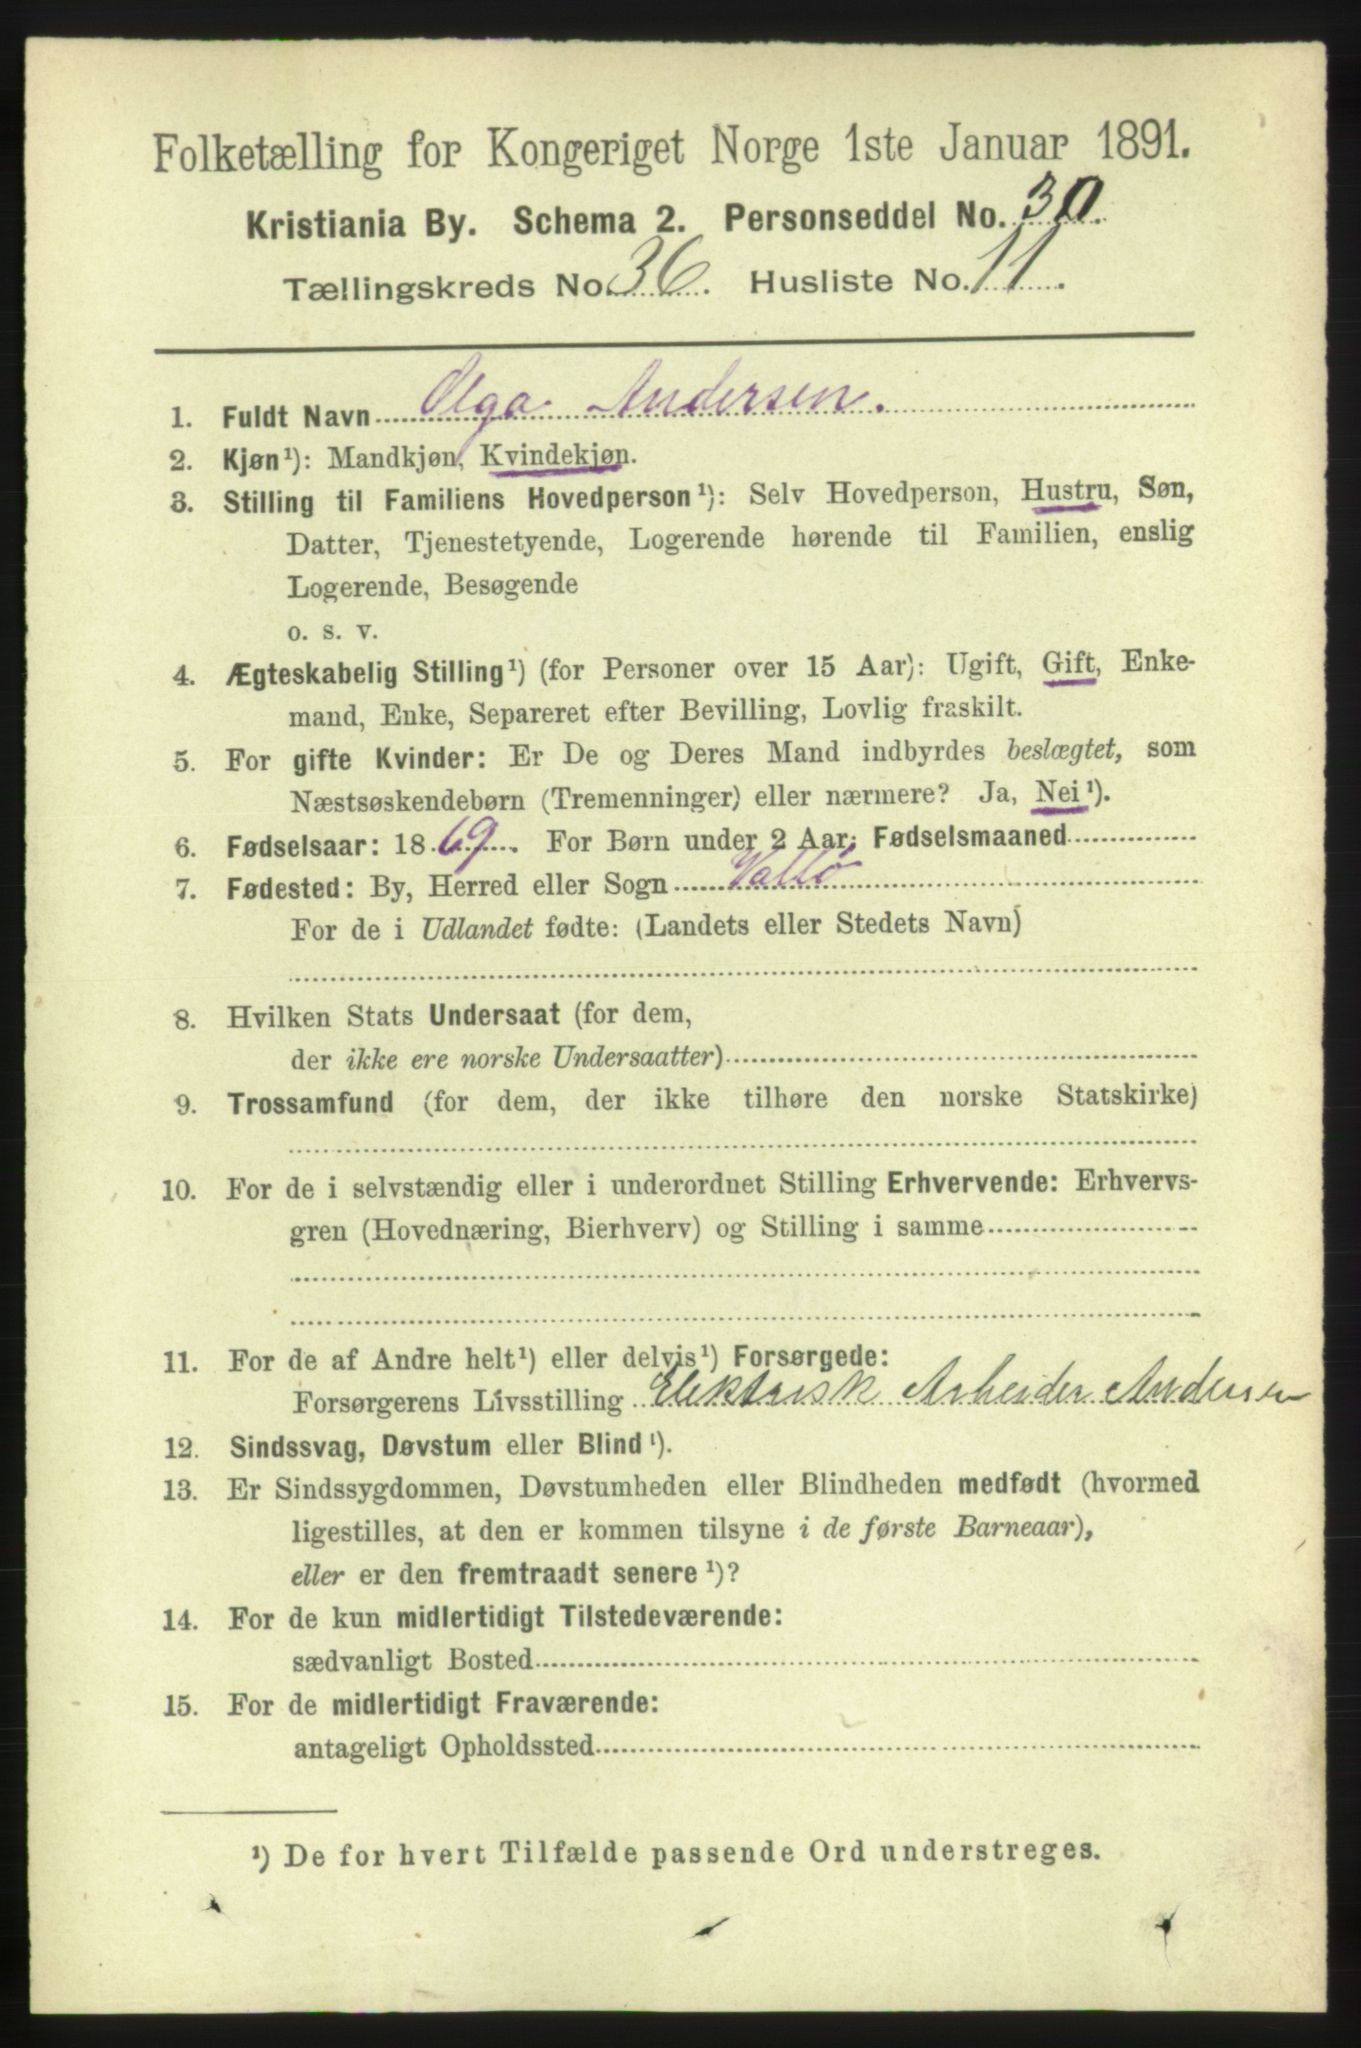 Folketælling for Kongeriget Norge 1ste Januar 1891.
Kristiania By. Schema 2. Personseddel No. 30.
Tællingskreds No. 36. Husliste No. 11.
1. Fuldt Navn Olga Andersen.
2. Kjøn¹): Mandkjøn, Kvindekjøn.
3. Stilling til Familiens Hovedperson¹): Selv Hovedperson, Hustru, Søn,
Datter, Tjenestetyende, Logerende hørende til Familien, enslig
Logerende, Besøgende
o. s. v.
4. Ægteskabelig Stilling¹) (for Personer over 15 Aar): Ugift, Gift, Enke-
mand, Enke, Separeret efter Bevilling, Lovlig fraskilt.
5. For gifte Kvinder: Er De og Deres Mand indbyrdes beslægtet, som
Næstsøskendebørn (Tremenninger) eller nærmere? Ja, Nei¹).
6. Fødselsaar: 1869. For Børn under 2 Aar: Fødselsmaaned
7. Fødested: By, Herred eller Sogn Vallö
For de i Udlandet fødte: (Landets eller Stedets Navn)
8. Hvilken Stats Undersaat (for dem,
der ikke ere norske Undersaatter)
9. Trossamfund (for dem, der ikke tilhøre den norske Statskirke)
10. For de i selvstændig eller i underordnet Stilling Erhvervende: Erhvervs-
gren (Hovednæring, Bierhverv) og Stilling i samme
11. For de af Andre helt¹) eller delvis¹) Forsørgede:
Forsørgerens Livsstilling Elektrisk Arbeider Andersen
12. Sindssvag, Døvstum eller Blind¹).
13. Er Sindssygdommen, Døvstumheden eller Blindheden medfødt (hvormed
ligestilles, at den er kommen tilsyne i de første Barneaar),
eller er den fremtraadt senere¹)?
14. For de kun midlertidigt Tilstedeværende:
sædvanligt Bosted
15. For de midlertidigt Fraværende:
antageligt Opholdssted
¹) De for hvert Tilfælde passende Ord understreges.